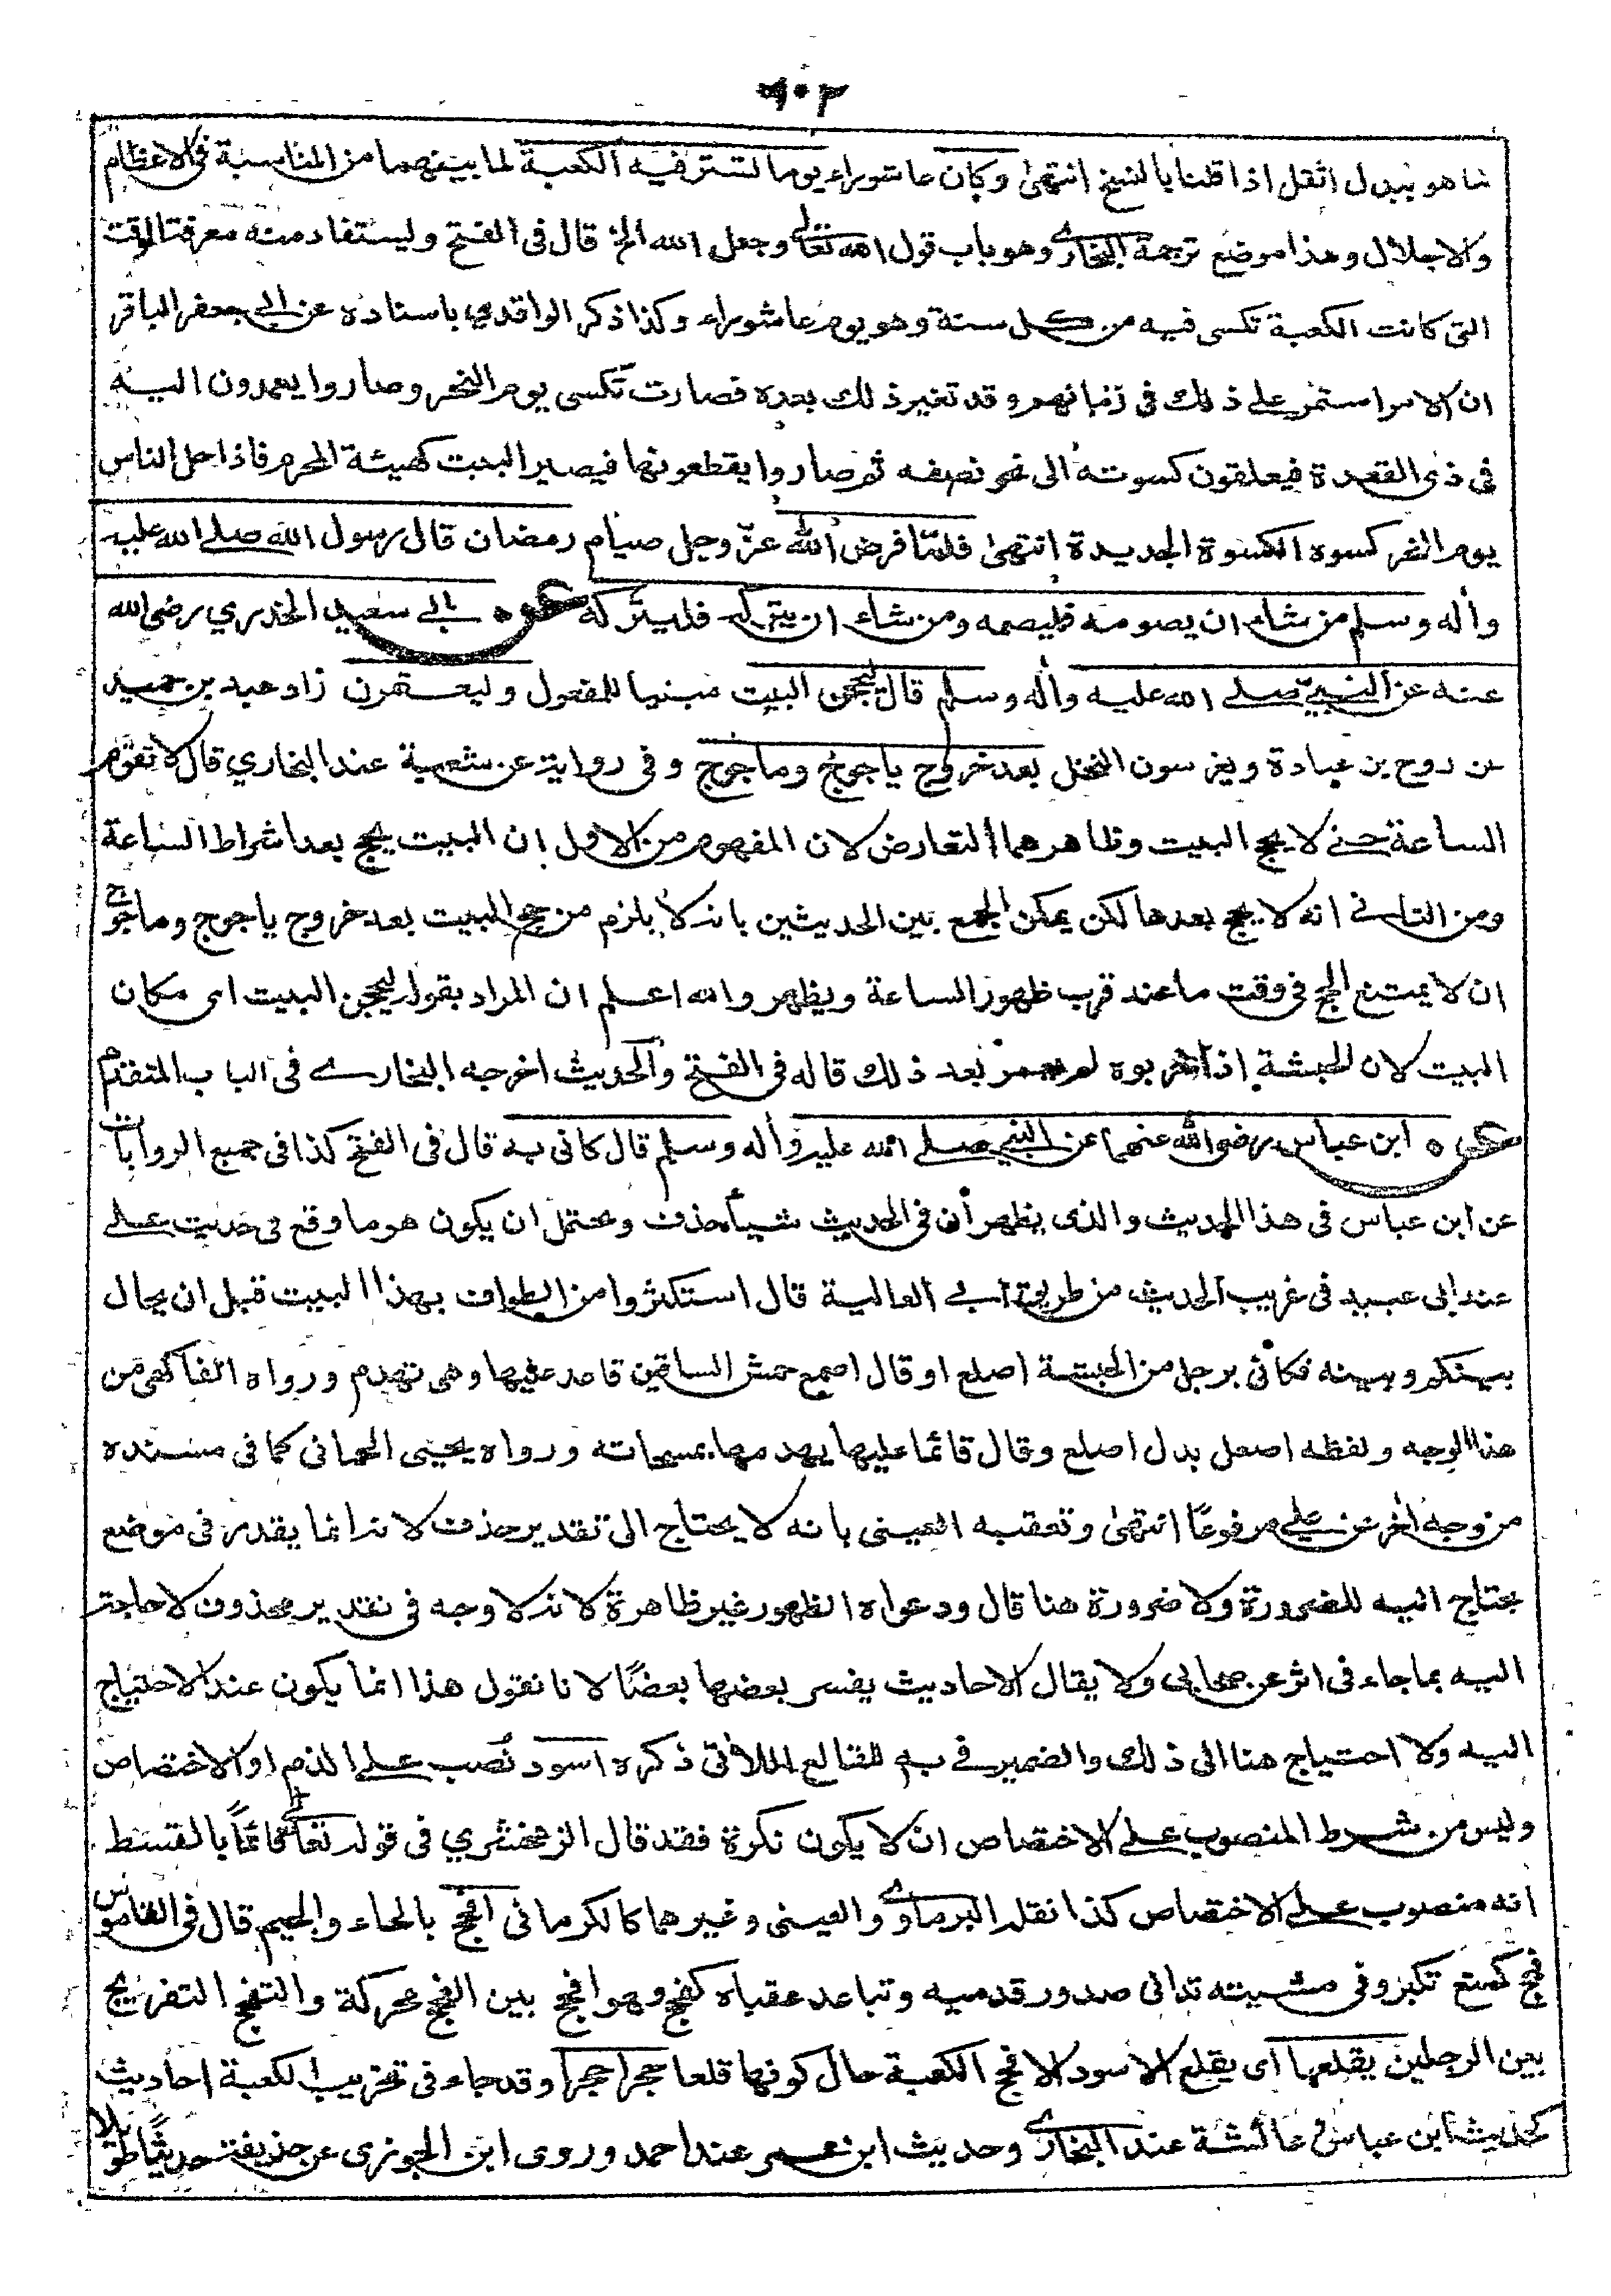 شاهو يبدل اثقل اذا قلنا بالنسخ انتهى وكان عاشوراء يوما تستر فيه الكعبة لما بينهما من المناسبة فى الاعظام
والاجلال وهذا موضع ترجمة البخاري وهو باب قول الله تعالى وجعل الله الخ قال فى الفتح وليستفاد منه معرفة الوقت
التى كانت الكعبة تكسى فيه من كل سنة وهو يوم عاشوراء وكذا ذكر الواقدي باسناده عن ابي جعفر الباقر
ان الامر استمر على ذلك فى زمانهم وقد تغير ذلك بعده فصارت تكسى يوم النحر وصاروا يعمدون اليه
فى ذى القعدة فيعلقون كسوته الى نحو نصفه ثم صاروا يقطعونها فيصير البيت كهيئة المحرم فاذا حل الناس
يوم النحر كسوه الكسوة الجديدة انتهى فلما فرض الله عزّ وجل صيام رمضان قال رسول الله صلى الله عليه
وأله وسلم من شاء ان يصومه فليصمه ومن شاء ان يتركه فليتركه عن ٥ ابي سعيد الخدري رضى الله
عنه عن النبيّ صلى الله عليه وأله وسلم قال ليحجن البيت مبنيا للمفعول وليعتمرن زاد عبد بن حميد
عن روح بن عبادة ويغرسون النخل بعد خروج ياجوج وماجوج وفى رواية عن شعبة عند البخاري قال لا تقوم
الساعة حتى لا يحج البيت وظاهرهما التعارض لان المفهوم من الاول ان البيت يحج بعد اشراط الساعة
ومن الثانى انه لا يحج بعدها لكن يمكن الجمع بين الحديثين بانه لا يلزم من حج البيت بعد خروج ياجوج وماجوج
ان لا يمتنع الحج فى وقت ما عند قرب ظهور الساعة ويظهر والله اعلم ان المراد بقوله ليحجن البيت اى مكان
البيت لان الحبشة اذا خربوه لم يعمر بعد ذلك قاله فى الفتح والحديث اخرجه البخارى فى الباب المتقدم
عن ٥ ابن عباس رضى الله عنهما عن النبي صلى الله عليه وأله وسلم قال كانى به قال فى الفتح كذا فى جميع الروايات
عن ابن عباس فى هذا الحديث والذى يظهر أن فى الحديث شيأ حذف ويحتمل ان يكون هو ما وقع فى حديث على
عند ابى عبيد فى غريب الحديث من طريق ابى العالية قال استكثروا من الطواف بهذا البيت قبل ان يحال
بينكم وبينه فكانى برجل من الحبشة اصلع او قال اصمع حمش الساقين قاعد عليها وهى تهدم ورواه الفاكهى من
هذا الوجه ولفظه اصعل بدل اصلع وقال قائما عليها يهدمها بمسحاته ورواه يحيى الحمانى كما فى مسنده
من وجه أخر عن على مرفوعًا انتهى وتعقبه العينى بانه لا يحتاج الى تقدير حذف لانه انما يقدر فى موضع
يحتاج اليه للضرورة ولا ضرورة هنا قال ودعواه الظهور غير ظاهرة لانه لا وجه فى تقدير محذوف لا حاجة
اليه بما جاء فى اثر عن صحابى ولا يقال الاحاديث يفسر بعضها بعضًا لانا نقول هذا انما يكون عند الاحتياج
اليه ولا احتياج هنا الى ذلك والضمير في به للقالع الآتى ذكره اسود نُصب على الذم او الاختصاص
وليس من شرط المنصوب على الاختصاص ان لا يكون نكرة فقد قال الزمخشري فى قوله تعالى قائمًا بالقسط
انه منصوب على الاختصاص كذا نقله البرماوي والعينى وغيرهما كالكرمانى افحج بالحاء والجيم قال فى القاموس
فحج كمنع تكبر وفى مشيته تدانى صدور قدميه وتباعد عقباه كفحج وهو افحج بين الفحج محركة والتفحج التفريج
بين الرجلين يقلعها اى يقلع الاسود الافحج الكعبة حال كونها قلعا حجرا حجرا وقد جاء فى تخريب الكعبة احاديث
كحديث ابن عباس وعائشة عند البخاري وحديث ابن عمر عند احمد وروى ابن الجوزى عن حذيفة حديثًا طويلا